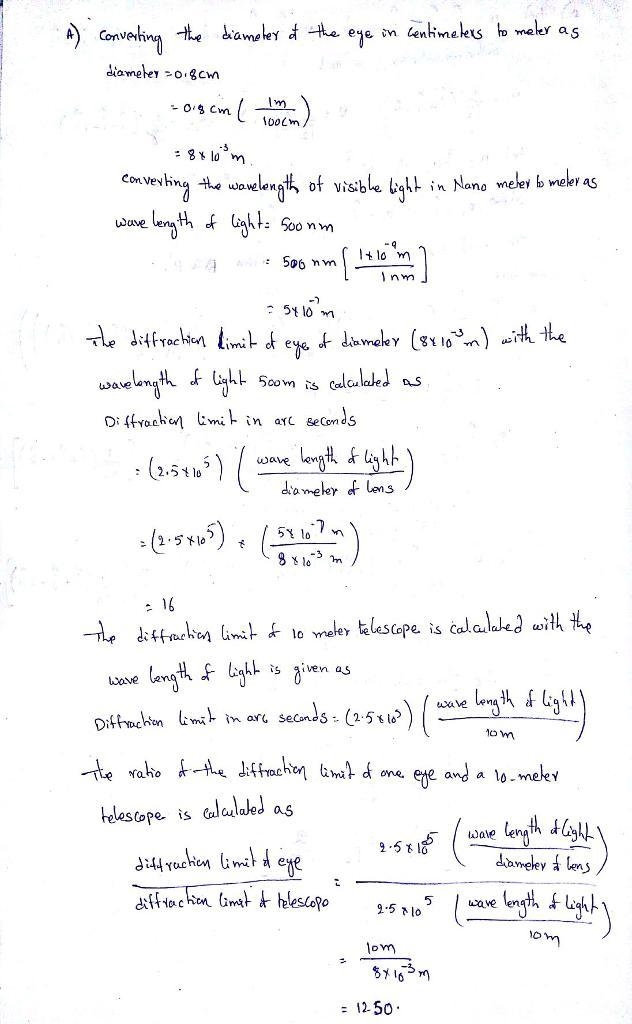 A) Converting the diameter of the eye in centimeters to meter as
diameter = 0.8cm
= 0.8 cm ( 1m / 100cm )
= 8 × 10⁻³ m
Converting the wavelength of visible light in Nano meter to meter as
wave length of light = 500 nm
= 500 nm [ 1×10⁻⁹ m / 1 nm ]
= 5×10⁻⁷ m
The diffraction limit of eye of diameter (8×10⁻³ m) with the
wavelength of light 500m is calculated as
Diffraction limit in arc seconds
= (2.5×10⁵) ( wave length of light / diameter of lens )
= (2.5×10⁵) * ( 5×10⁻⁷ m / 8×10⁻³ m )
= 16
The diffraction limit of 10 meter telescope is calculated with the
wave length of light is given as
Diffraction limit in arc seconds = (2.5×10⁵) ( wave length of light / 10m )
The ratio of the diffraction limit of one eye and a 10-meter
telescope is calculated as
diffraction limit of eye / diffraction limit of telescope = 2.5×10⁵ ( wave length of light / diameter of lens ) / 2.5×10⁵ ( wave length of light / 10m )
= 10m / 8×10⁻³ m
= 1250.